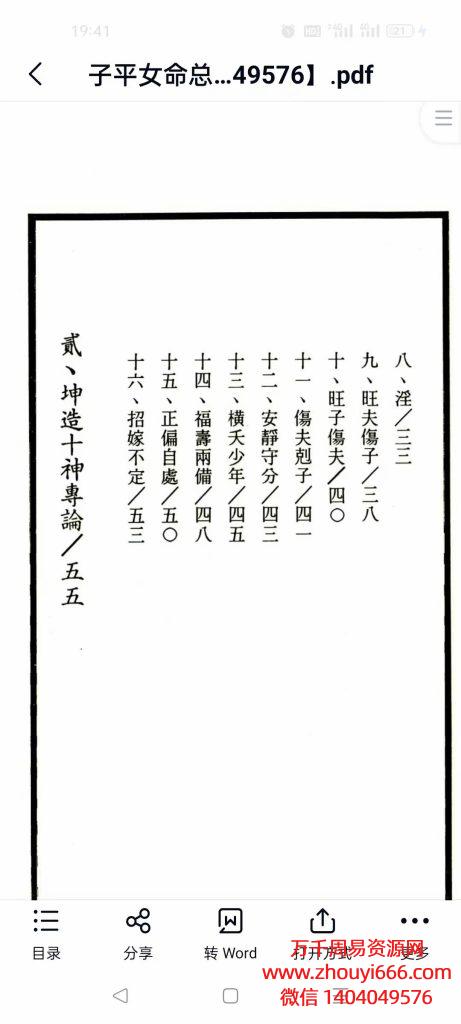 19:41
21
子平女命总...49576】.pdf
八、淫／三三
九、旺夫傷子／三八
十、旺子傷夫／四〇
十一、傷夫剋子／四一
十二、安靜守分／四三
十三、橫夭少年／四五
十四、福壽兩備／四八
十五、正偏自處／五〇
十六、招嫁不定／五三
貳、坤造十神專論／五五
目录
分享
转 Word
打开方式
更多
万千周易资源网
www.zhouyi666.com
微信 1404049576